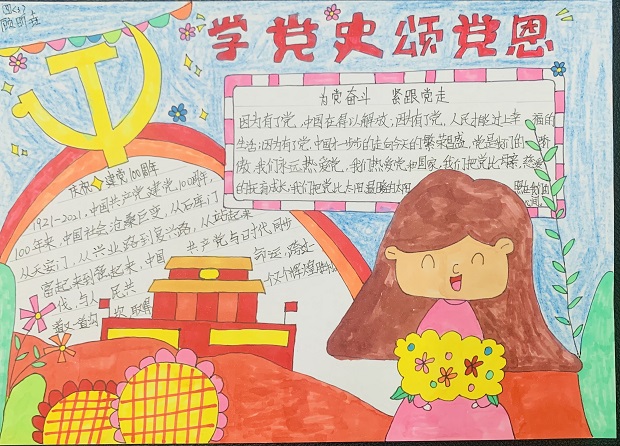 学党史颂党恩
为党奋斗 紧跟党走
因为有了党,中国在得以解放,因为有了党,人民才能过上幸福的
生活;因为有了党,中国一步一步的走向今天的繁荣昌盛,党是我们的骄
傲,我们永远热爱党,我们热爱党和国家,我们把党比母亲,慈爱
的抚育成长,我们把党比太阳,温暖的太阳
庆祝建党100周年
1921-2021,中国共产党建党100周年,
100年来,中国社会沧桑巨变,从石库门
从天安门,从兴业路到复兴路,从站起来
富起来到强起来,中国共产党与时代同步
伐,与人民共命运